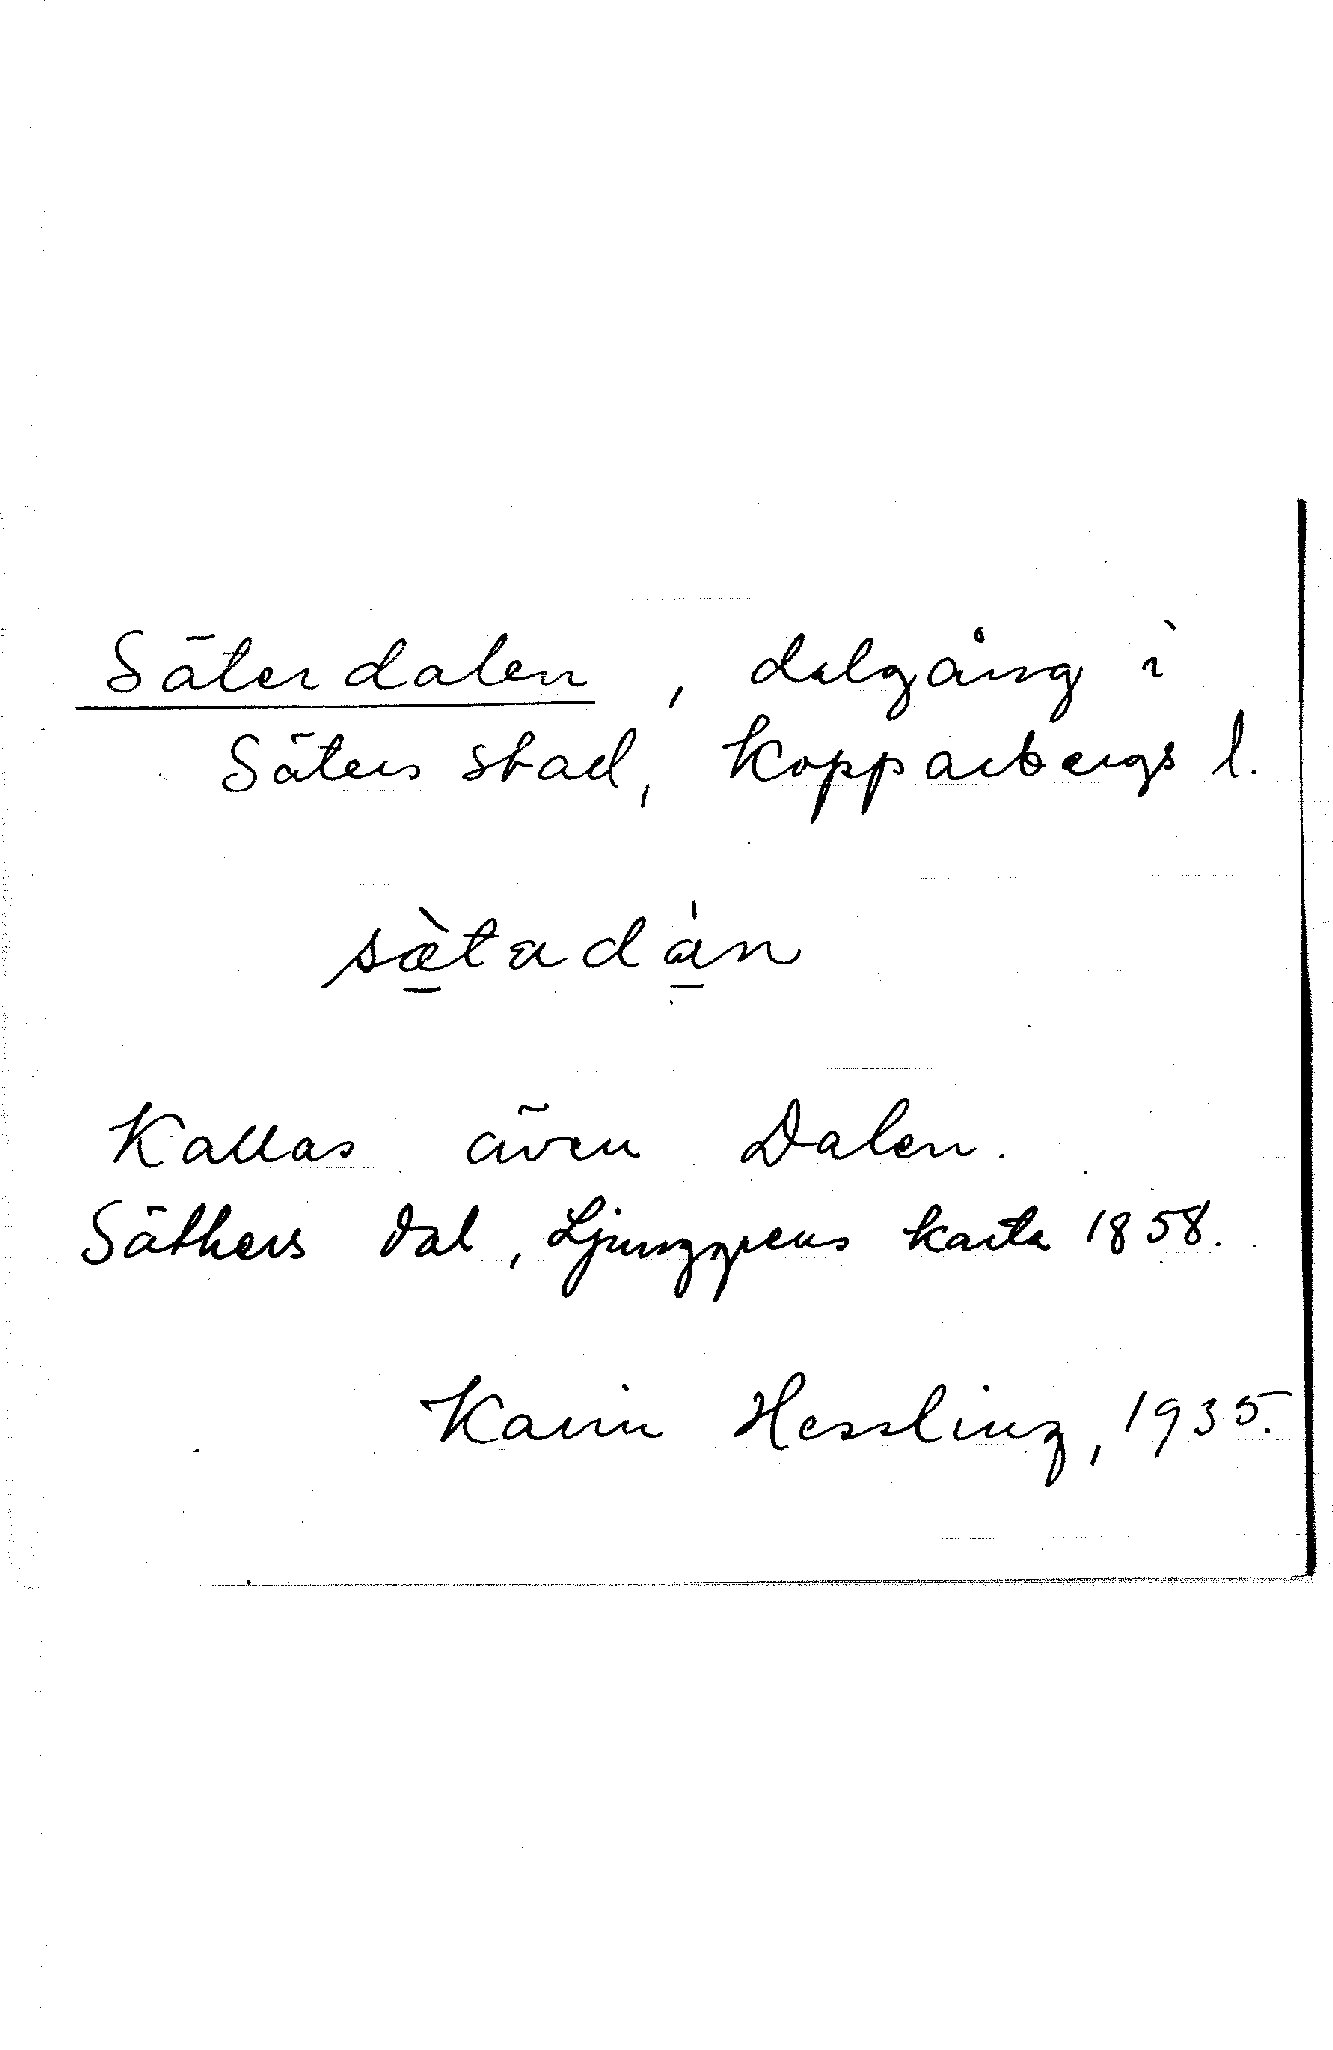 Säterdalen, dalgång i
Säters stad, Kopparbergs l.
sæ̀tadàn
Kallas även Dalen.
Säthers Dal, Ljunggrens karta 1858.
Karin Hessling, 1935.